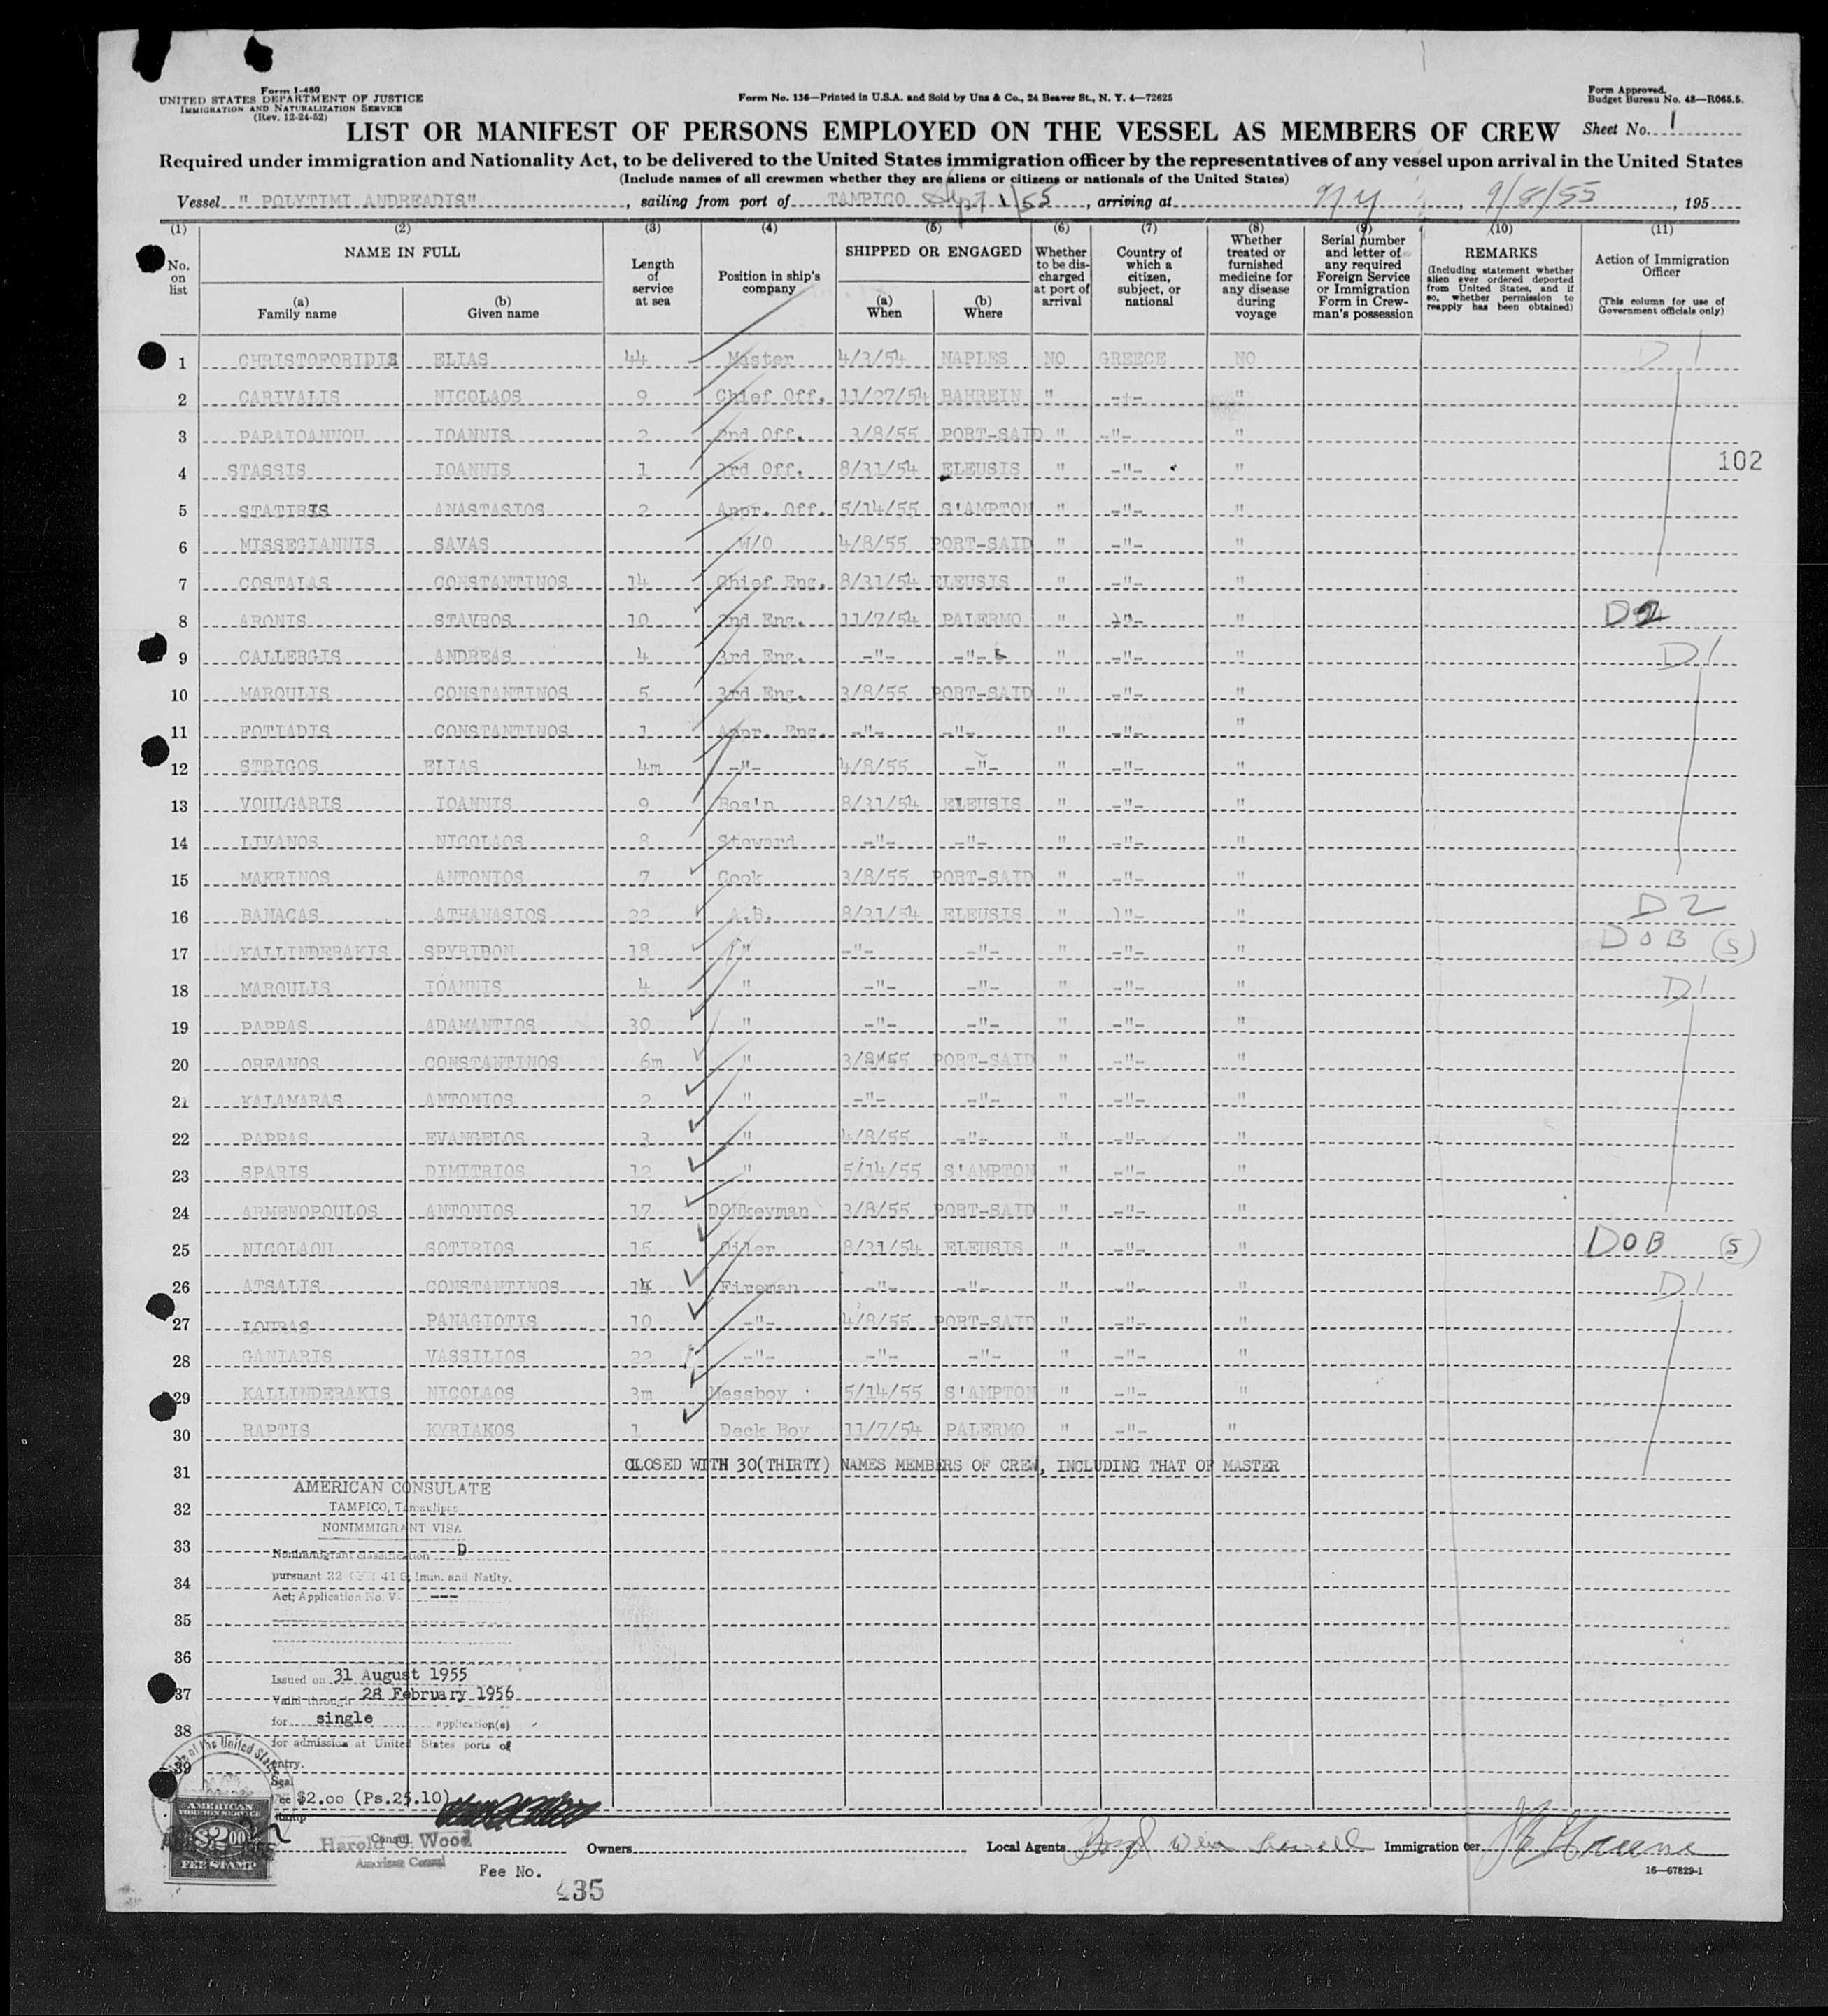 Form I-480
UNITED STATES DEPARTMENT OF JUSTICE
IMMIGRATION AND NATURALIZATION SERVICE
(Rev. 12-24-52)
Form No. 136—Printed in U.S.A. and Sold by Unz & Co., 24 Beaver St., N. Y. 4—72625
Form Approved.
Budget Bureau No. 43—R065.5.
LIST OR MANIFEST OF PERSONS EMPLOYED ON THE VESSEL AS MEMBERS OF CREW Sheet No. 1
Required under immigration and Nationality Act, to be delivered to the United States immigration officer by the representatives of any vessel upon arrival in the United States
(Include names of all crewmen whether they are aliens or citizens or nationals of the United States)
Vessel " POLYTIMI ANDREADIS" , sailing from port of TAMPICO Sept 1/55 , arriving at NY , 9/8/55 , 195
(1) (2) (3) (4) (5) (6) (7) (8) (9) (10) (11)
No. on list
NAME IN FULL
(a) Family name
(b) Given name
Length of service at sea
Position in ship's company
SHIPPED OR ENGAGED
(a) When
(b) Where
Whether to be discharged at port of arrival
Country of which a citizen, subject, or national
Whether treated or furnished medicine for any disease during voyage
Serial number and letter of any required Foreign Service or Immigration Form in Crewman's possession
REMARKS
(Including statement whether alien ever ordered deported from United States, and if so, whether permission to reapply has been obtained)
Action of Immigration Officer
(This column for use of Government officials only)
1 CHRISTOFORIDIS ELIAS 44 Master 4/3/54 NAPLES NO GREECE NO D1
2 CARIVALIS NICOLAOS 9 Chief Off. 11/27/54 BAHREIN " -"- "
3 PAPAIOANNOU IOANNIS 2 2nd Off. 3/8/55 PORT-SAID " -"- "
4 STASSIS IOANNIS 1 3rd Off. 8/31/54 ELEUSIS " -"- "
102
5 STATIRIS ANASTASIOS 2 Appr. Off. 5/14/55 S'AMPTON " -"- "
6 MISSEGIANNIS SAVAS W/O 4/8/55 PORT-SAID " -"- "
7 COSTALAS CONSTANTINOS 14 Chief Eng. 8/31/54 ELEUSIS " -"- "
8 ARONIS STAVROS 10 2nd Eng. 11/7/54 PALERMO " -"- " D2
9 CALLERGIS ANDREAS 4 3rd Eng. -"- -"- " -"- " D1
10 MAROULIS CONSTANTINOS 5 3rd Eng. 3/8/55 PORT-SAID " -"- "
11 FOTIADIS CONSTANTINOS 1 Appr. Eng. -"- -"- " -"- "
12 STRIGOS ELIAS 4m -"- 4/8/55 -"- " -"- "
13 VOULGARIS IOANNIS 9 Bos'n 8/31/54 ELEUSIS " -"- "
14 LIVANOS NICOLAOS 8 Steward -"- -"- " -"- "
15 MAKRINOS ANTONIOS 7 Cook 3/8/55 PORT-SAID " -"- "
16 BANAGAS ATHANASIOS 22 A.B. 8/31/54 ELEUSIS " -"- " D2
17 KALLINDERAKIS SPYRIDON 18 " -"- -"- " -"- " DOB (S)
18 MAROULIS IOANNIS 4 " -"- -"- " -"- " D1
19 PAPPAS ADAMANTIOS 30 " -"- -"- " -"- "
20 ORFANOS CONSTANTINOS 6m " 3/8/55 PORT-SAID " -"- "
21 KALAMARAS ANTONIOS 2 " -"- -"- " -"- "
22 PAPPAS EVANGELOS 3 " 4/8/55 -"- " -"- "
23 SPARIS DIMITRIOS 12 " 5/14/55 S'AMPTON " -"- "
24 ARMENOPOULOS ANTONIOS 17 DONkeyman 3/8/55 PORT-SAID " -"- "
25 NICOLAOU SOTIRIOS 15 Oiler 8/31/54 ELEUSIS " -"- " DOB (S)
26 ATSALIS CONSTANTINOS 14 Fireman -"- -"- " -"- " D1
27 LOURAS PANAGIOTIS 10 -"- 4/8/55 PORT-SAID " -"- "
28 GANIARIS VASSILIOS 22 -"- -"- -"- " -"- "
29 KALLINDERAKIS NICOLAOS 3m Messboy 5/14/55 S'AMPTON " -"- "
30 RAPTIS KYRIAKOS 1 Deck Boy 11/7/54 PALERMO " -"- "
31 CLOSED WITH 30(THIRTY) NAMES MEMBERS OF CREW, INCLUDING THAT OF MASTER
AMERICAN CONSULATE
32 TAMPICO, Tamaulipas
NONIMMIGRANT VISA
33 Nonimmigrant classification D
pursuant 22 CFR 41 Imm. and Natlty.
34
Act; Application No. V. ---
35
36
Issued on 31 August 1955
37 Valid through 28 February 1956
for single application(s)
38
for admission at United States ports of
39 entry.
Seal
Fee $2.00 (Ps.25.10)
Stamp
AMERICAN
FOREIGN SERVICE
$2.00
FEE STAMP
Consul
Harold C. Wood
American Consul
Fee No.
435
Owners
Local Agents
Immigration cer
16—67829-1